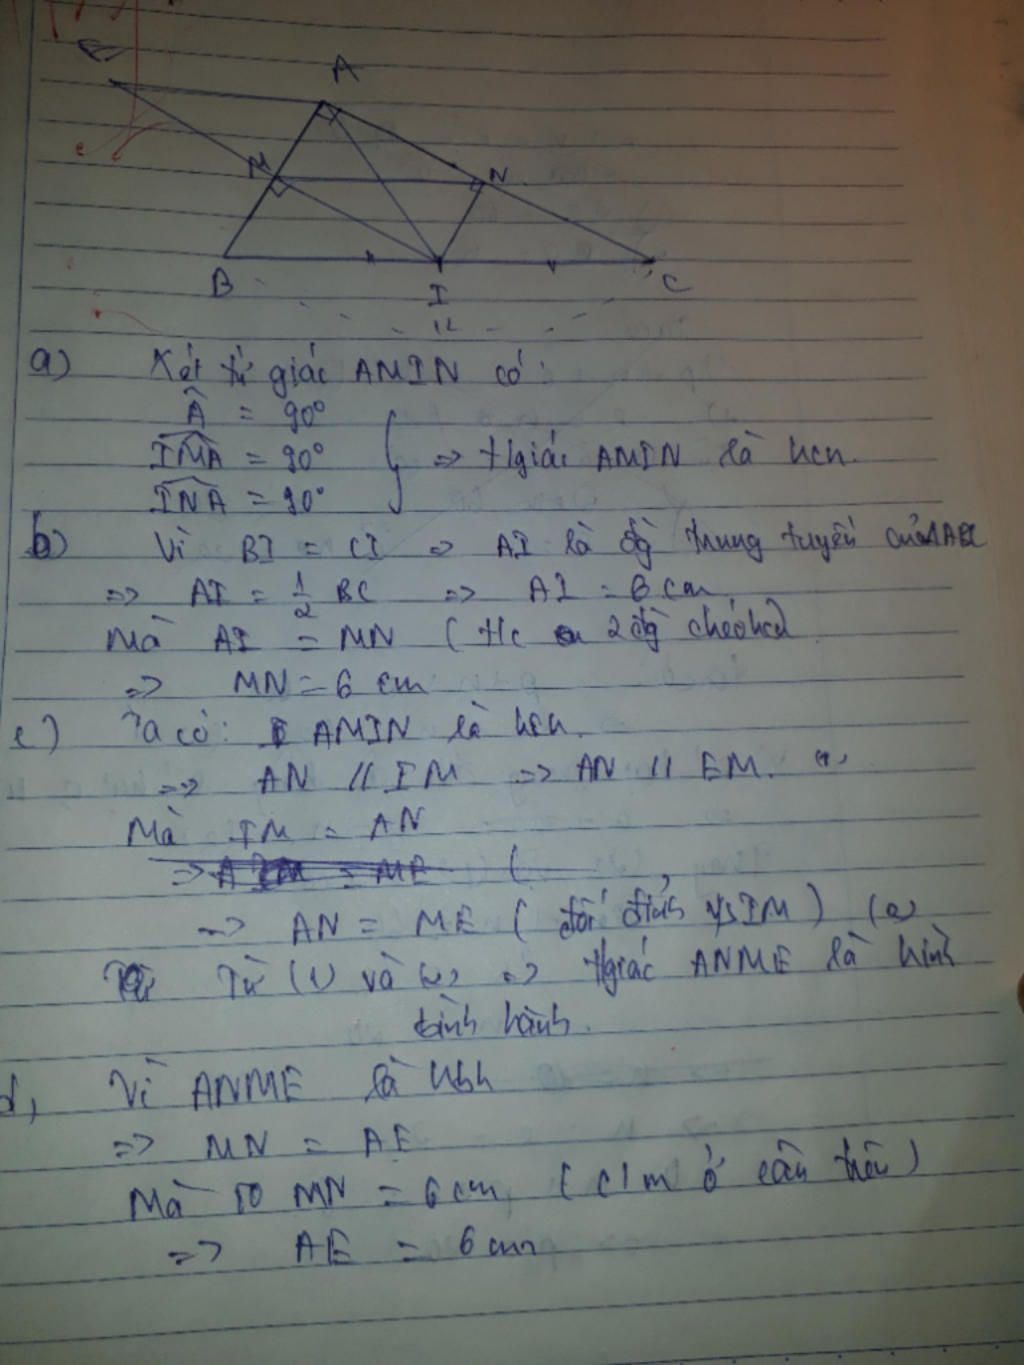 E
A
M
N
B
I
C
12
a) Xét tứ giác AMIN có:
Â = 90°
IMA = 90°
INA = 90°
=> tgiác AMIN là hcn.
b) Vì BI = CI => AI là đg trung tuyến của ΔABC
=> AI = 1/2 BC => AI = 6 cm
Mà AI = MN (t/c 2 đg chéo hcn)
=> MN = 6 cm
c) Ta có: AMIN là hcn.
=> AN // IM => AN // EM. (1)
Mà IM = AN
=> AN = ME (đối IM) (2)
Từ (1) và (2) => tgiác ANME là hình
bình hành.
d, Vì ANME là hbh
=> MN = AE
Mà MN = 6 cm (c/m ở câu trên)
=> AE = 6 cm